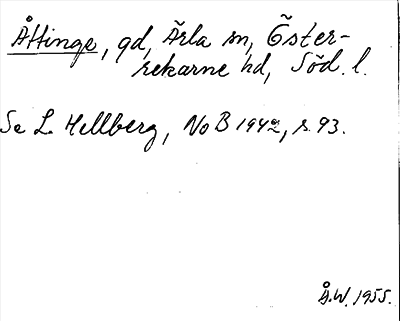 Åttinge, gd, Ärla sn, Öster-
rekarne hd, Söd. l.
Se L. Hellberg, NoB 1942, s. 93.
Å.W. 1955.